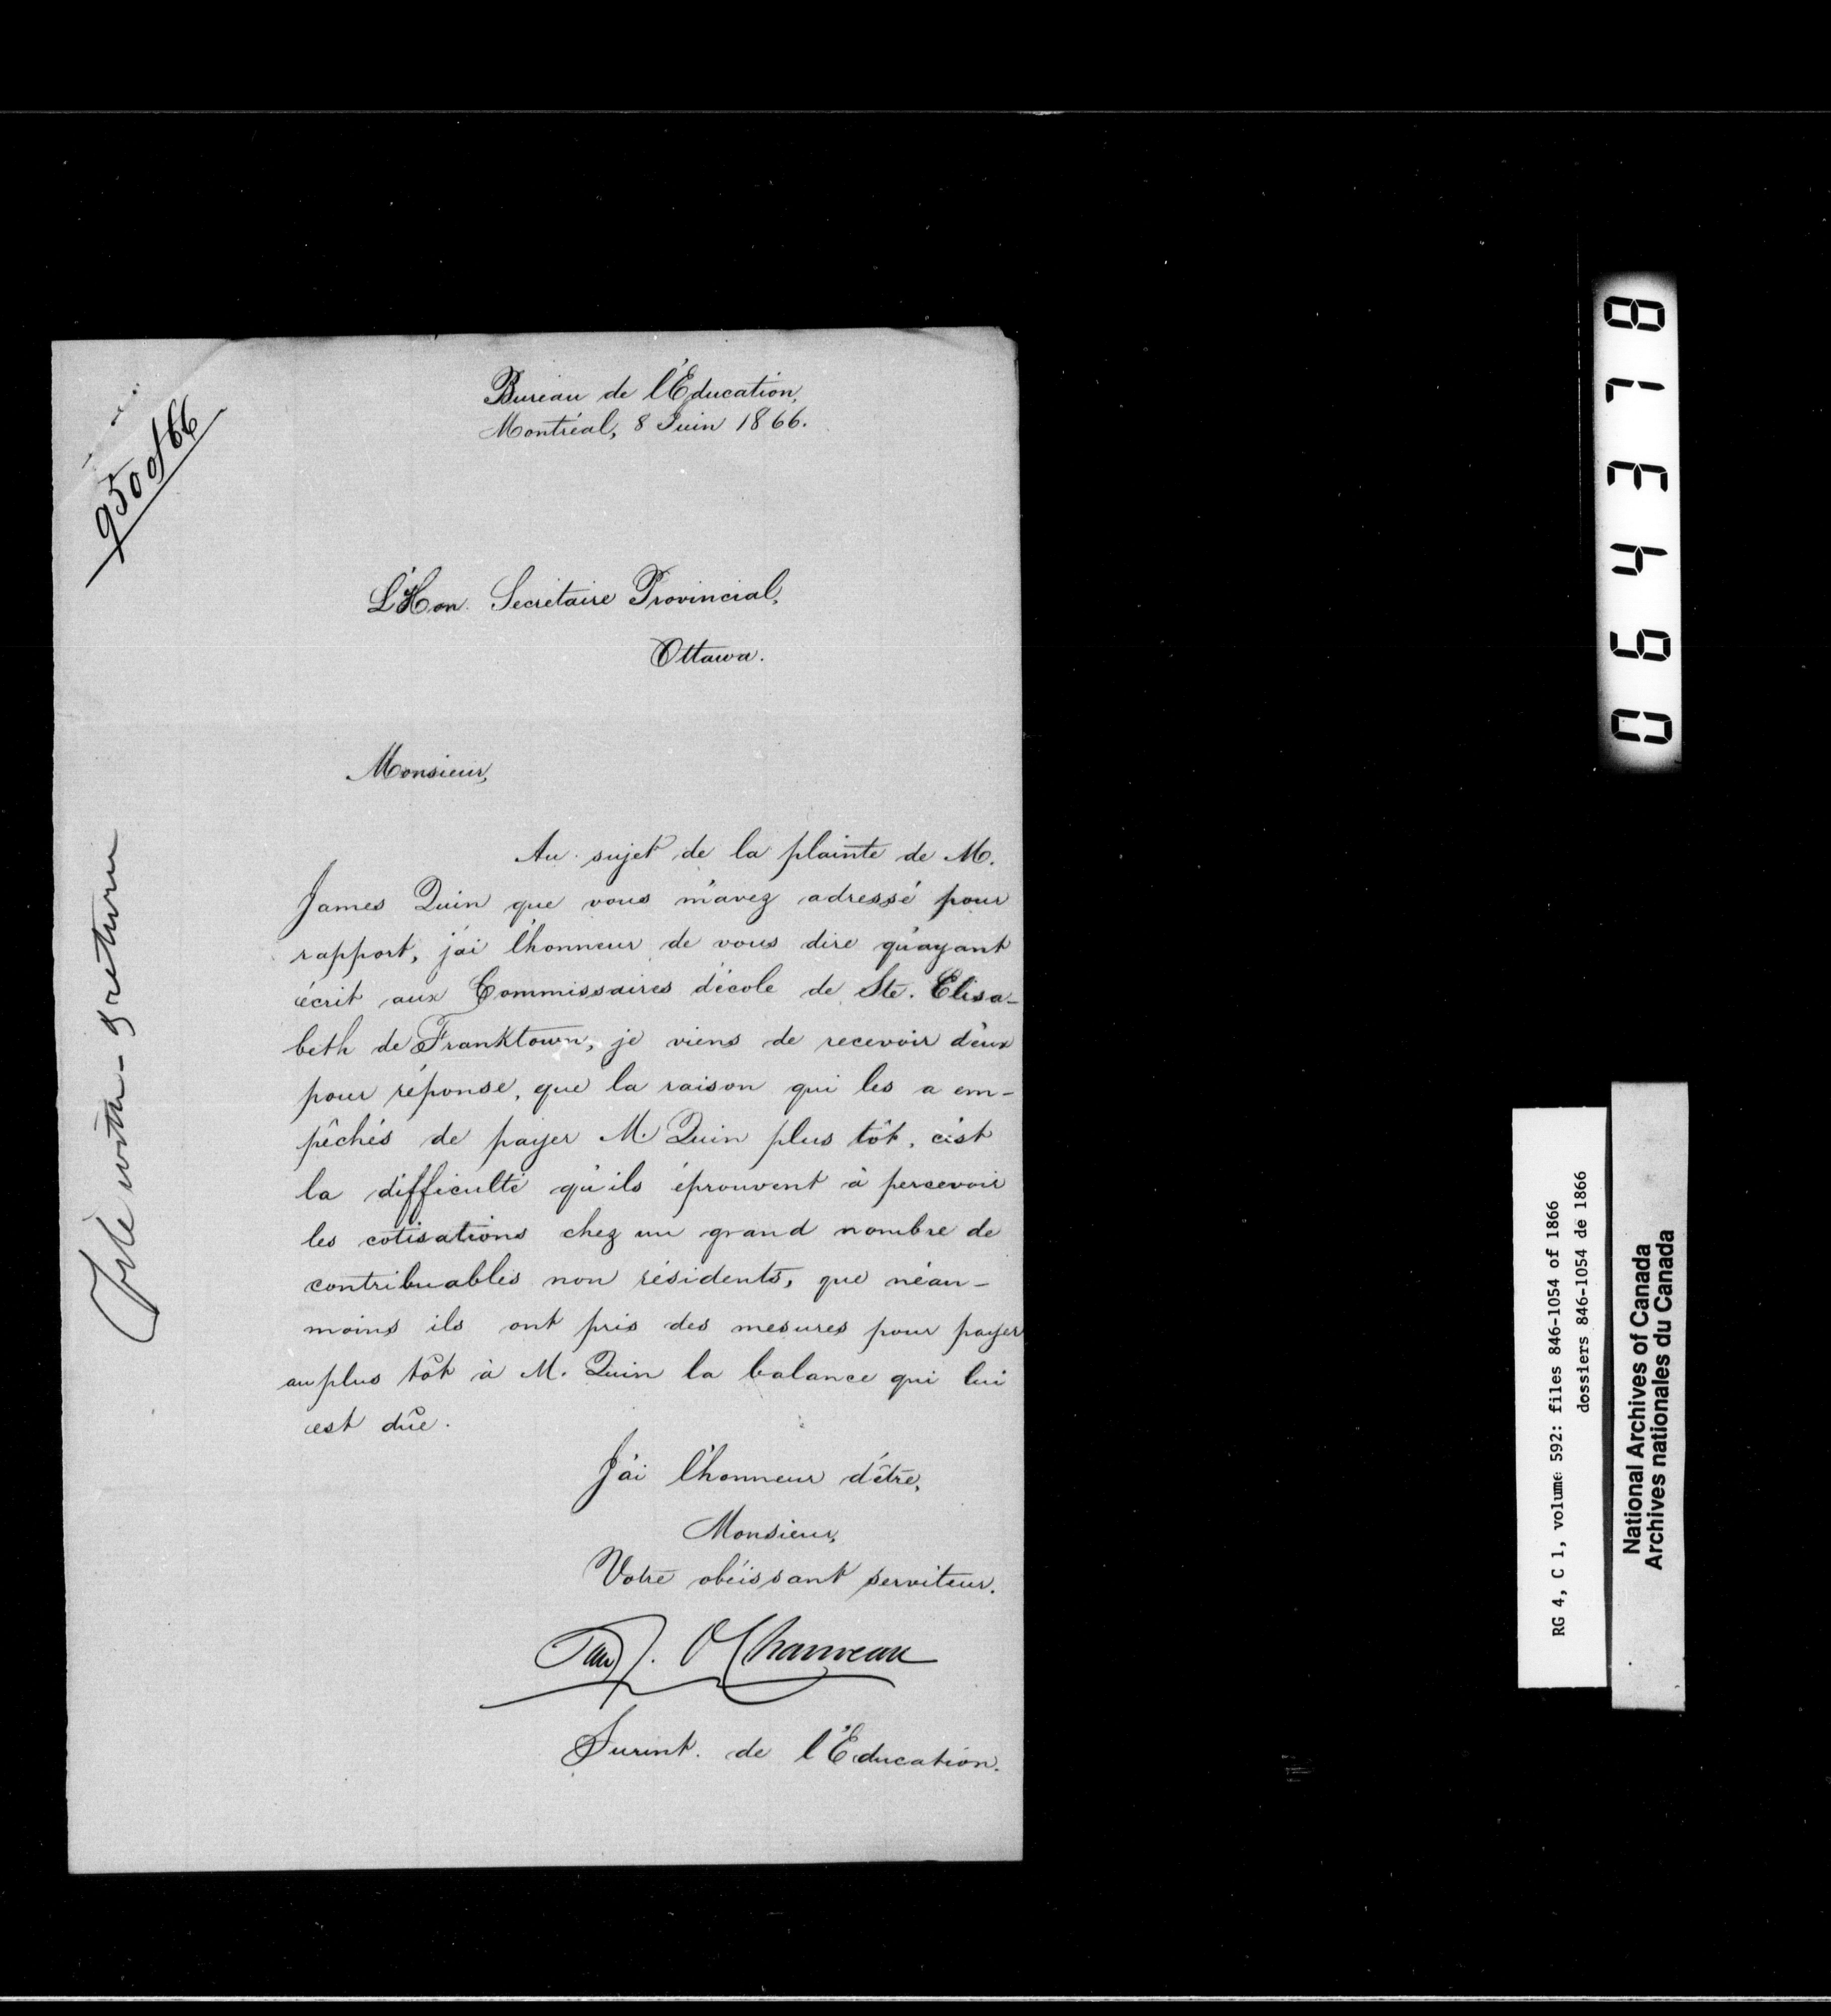 950 of 66
Bureau de l'Education,
Montréal, 8 Juin 1866.
L'Hon. Secrétaire Provincial,
Ottawa.
Monsieur,
Au sujet de la plainte de M.
James Quin que vous m'avez adressé pour
rapport, j'ai l'honneur de vous dire qu'ayant
écrit aux Commissaires d'école de Ste. Elisa-
beth de Franktown, je viens de recevoir d'eux
pour réponse, que la raison qui les a em-
pêchés de payer M. Quin plus tôt, c'est
la difficulté qu'ils éprouvent à percevoir
les cotisations chez un grand nombre de
contribuables non résidents, que néan-
moins ils ont pris des mesures pour payer
au plus tôt à M. Quin la balance qui lui
est dûe.
J'ai l'honneur d'être,
Monsieur,
Votre obéissant serviteur.
Chauveau
Surint. de l'Education.
064378
RG 4, C 1, volume 592: files 846-1054 of 1866
dossiers 846-1054 de 1866
National Archives of Canada
Archives nationales du Canada